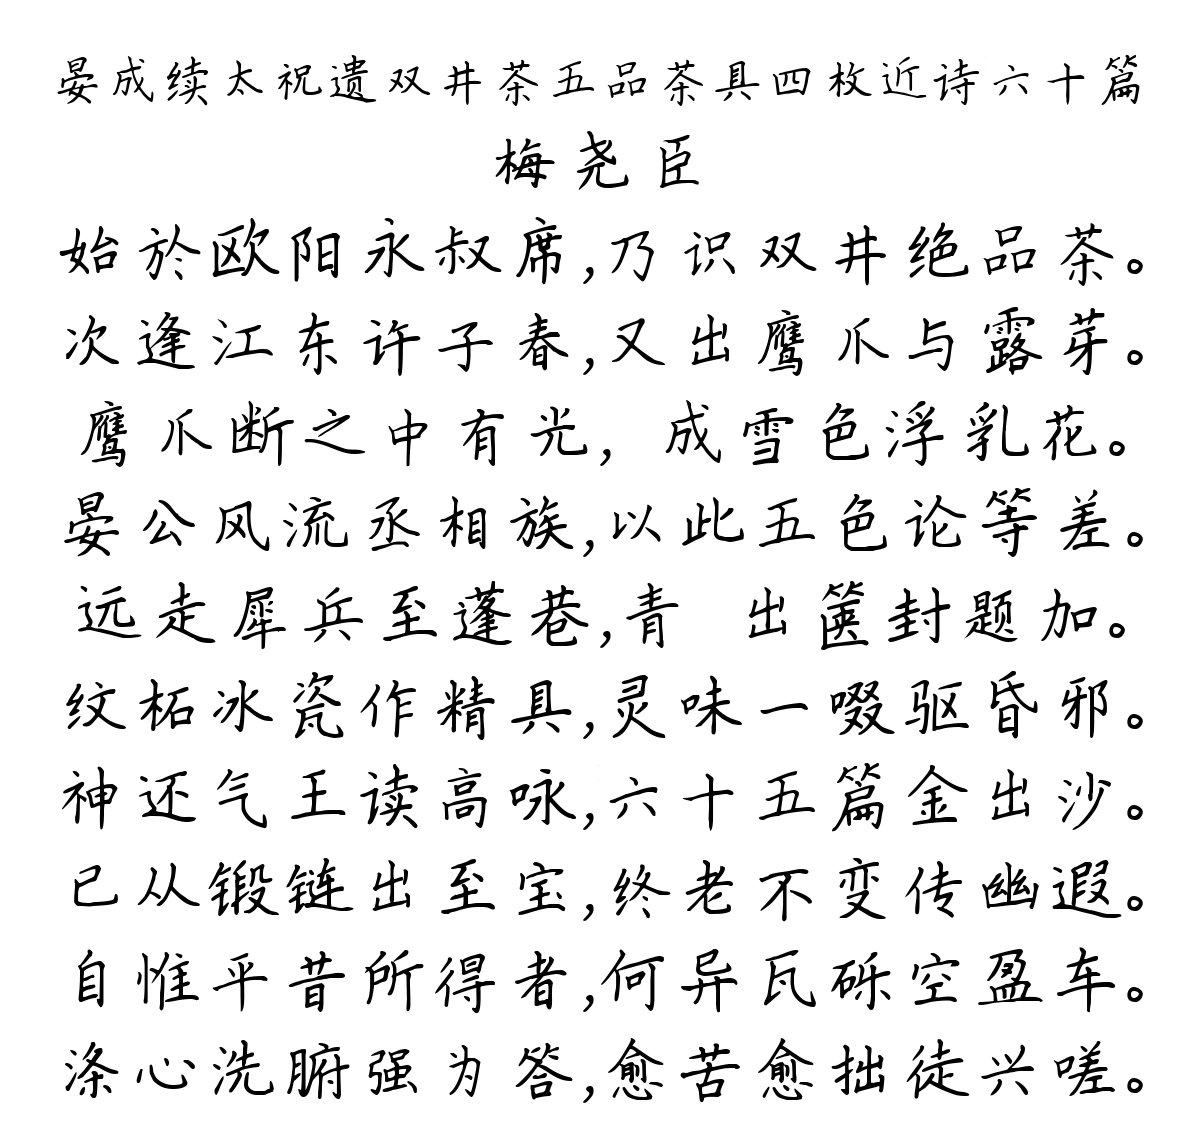 晏成续太祝遗双井茶五品茶具四枚近诗六十篇
梅尧臣
始於欧阳永叔席,乃识双井绝品茶。
次逢江东许子春,又出鹰爪与露芽。
鹰爪断之中有光,成雪色浮乳花。
晏公风流丞相族,以此五色论等差。
远走犀兵至蓬巷,青 出箧封题加。
纹柘冰瓷作精具,灵味一啜驱昏邪。
神还气王读高咏,六十五篇金出沙。
已从锻链出至宝,终老不变传幽遐。
自惟平昔所得者,何异瓦砾空盈车。
涤心洗腑强为答,愈苦愈拙徒兴嗟。